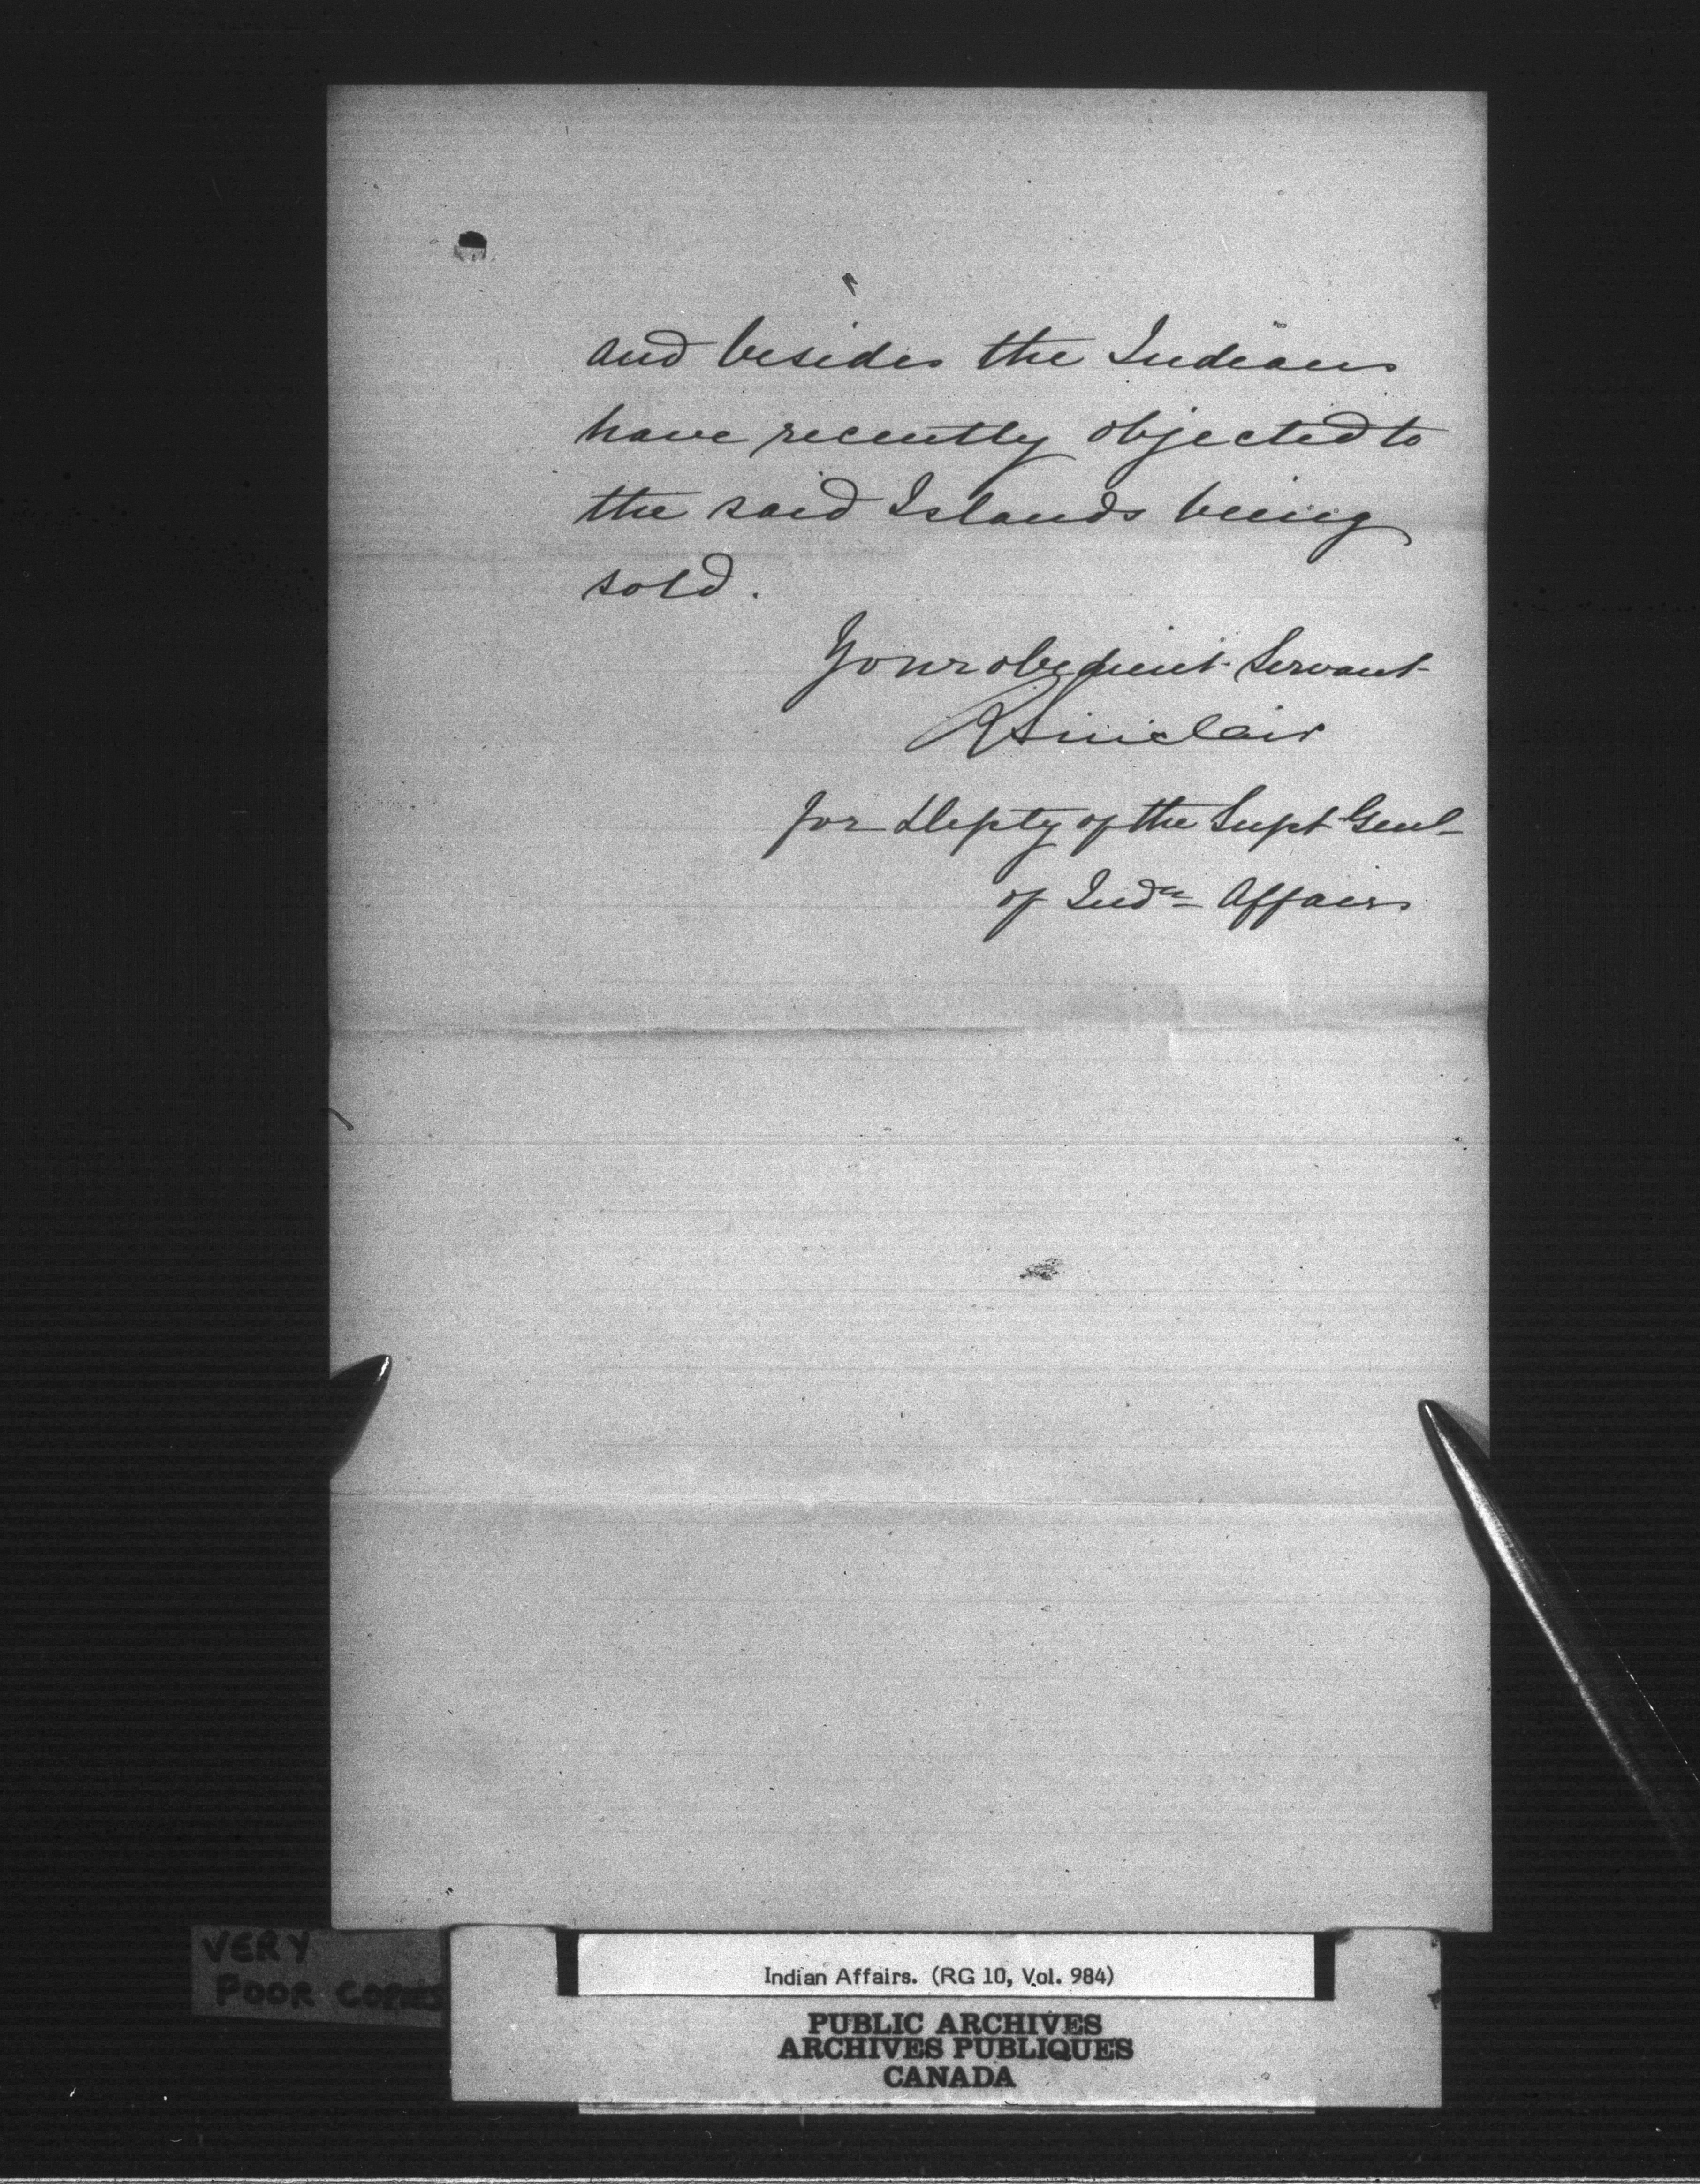 and besides the Indians
have recently objected to
the said Islands being
sold.
Your obedient Servant
R Sinclair
for Depty of the Supt Genl
of Indn Affairs
VERY
POOR COPIES
Indian Affairs. (RG 10, Vol. 984)
PUBLIC ARCHIVES
ARCHIVES PUBLIQUES
CANADA